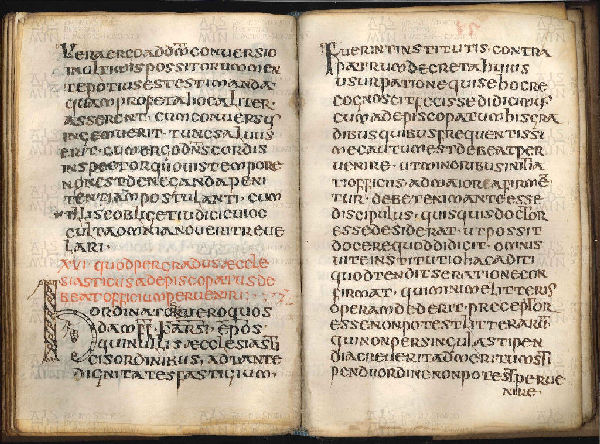 Vera ergo ad dm̄ conversio
in ultimis possitorum men
te potius est estimanda
quam profeta hoc aliter
asserent · cum conversus
ingemuerit · tunc salvus
erit · cum ergo dn̄s cordis
inspector quovis tempore
non est deneganda peni
tentiam postulanti · cum
ille se obliget iudici cui oc
culta omnia noverit reve
lari ·
XVI quod per gradus aeccle
siasticus ad episcopatus de
beat officium perveniri :
Ordinatos vero quos
dam fr̄r karsi · epōs
qui nullis aecclesiasti
cis ordinibus, ad tante
dignitates fastigium ·
Fuerint institutis · contra
patrum decreta huius
usurpatione qui se hoc re
cognoscit fecisse didicimus
cum ad episcopatum his gra
dibus quibus frequentissi
me cautum est debeat per
venire · ut minoribus initia
ti officiis · ad maiora firmē
tur · debet enim ante esse
discipulus · quisquis doctor
esse desiderat · ut possit
docere quod didicit · omnis
vite institutio hac ad id
quod tendit se ratione con
firmat · qui minime litteris
operam dederit · preceptor
esse non potest litterarum
qui non per singula stipen
dia creverit ad emeritum sti
pendii ordine non potest perve
nire ·